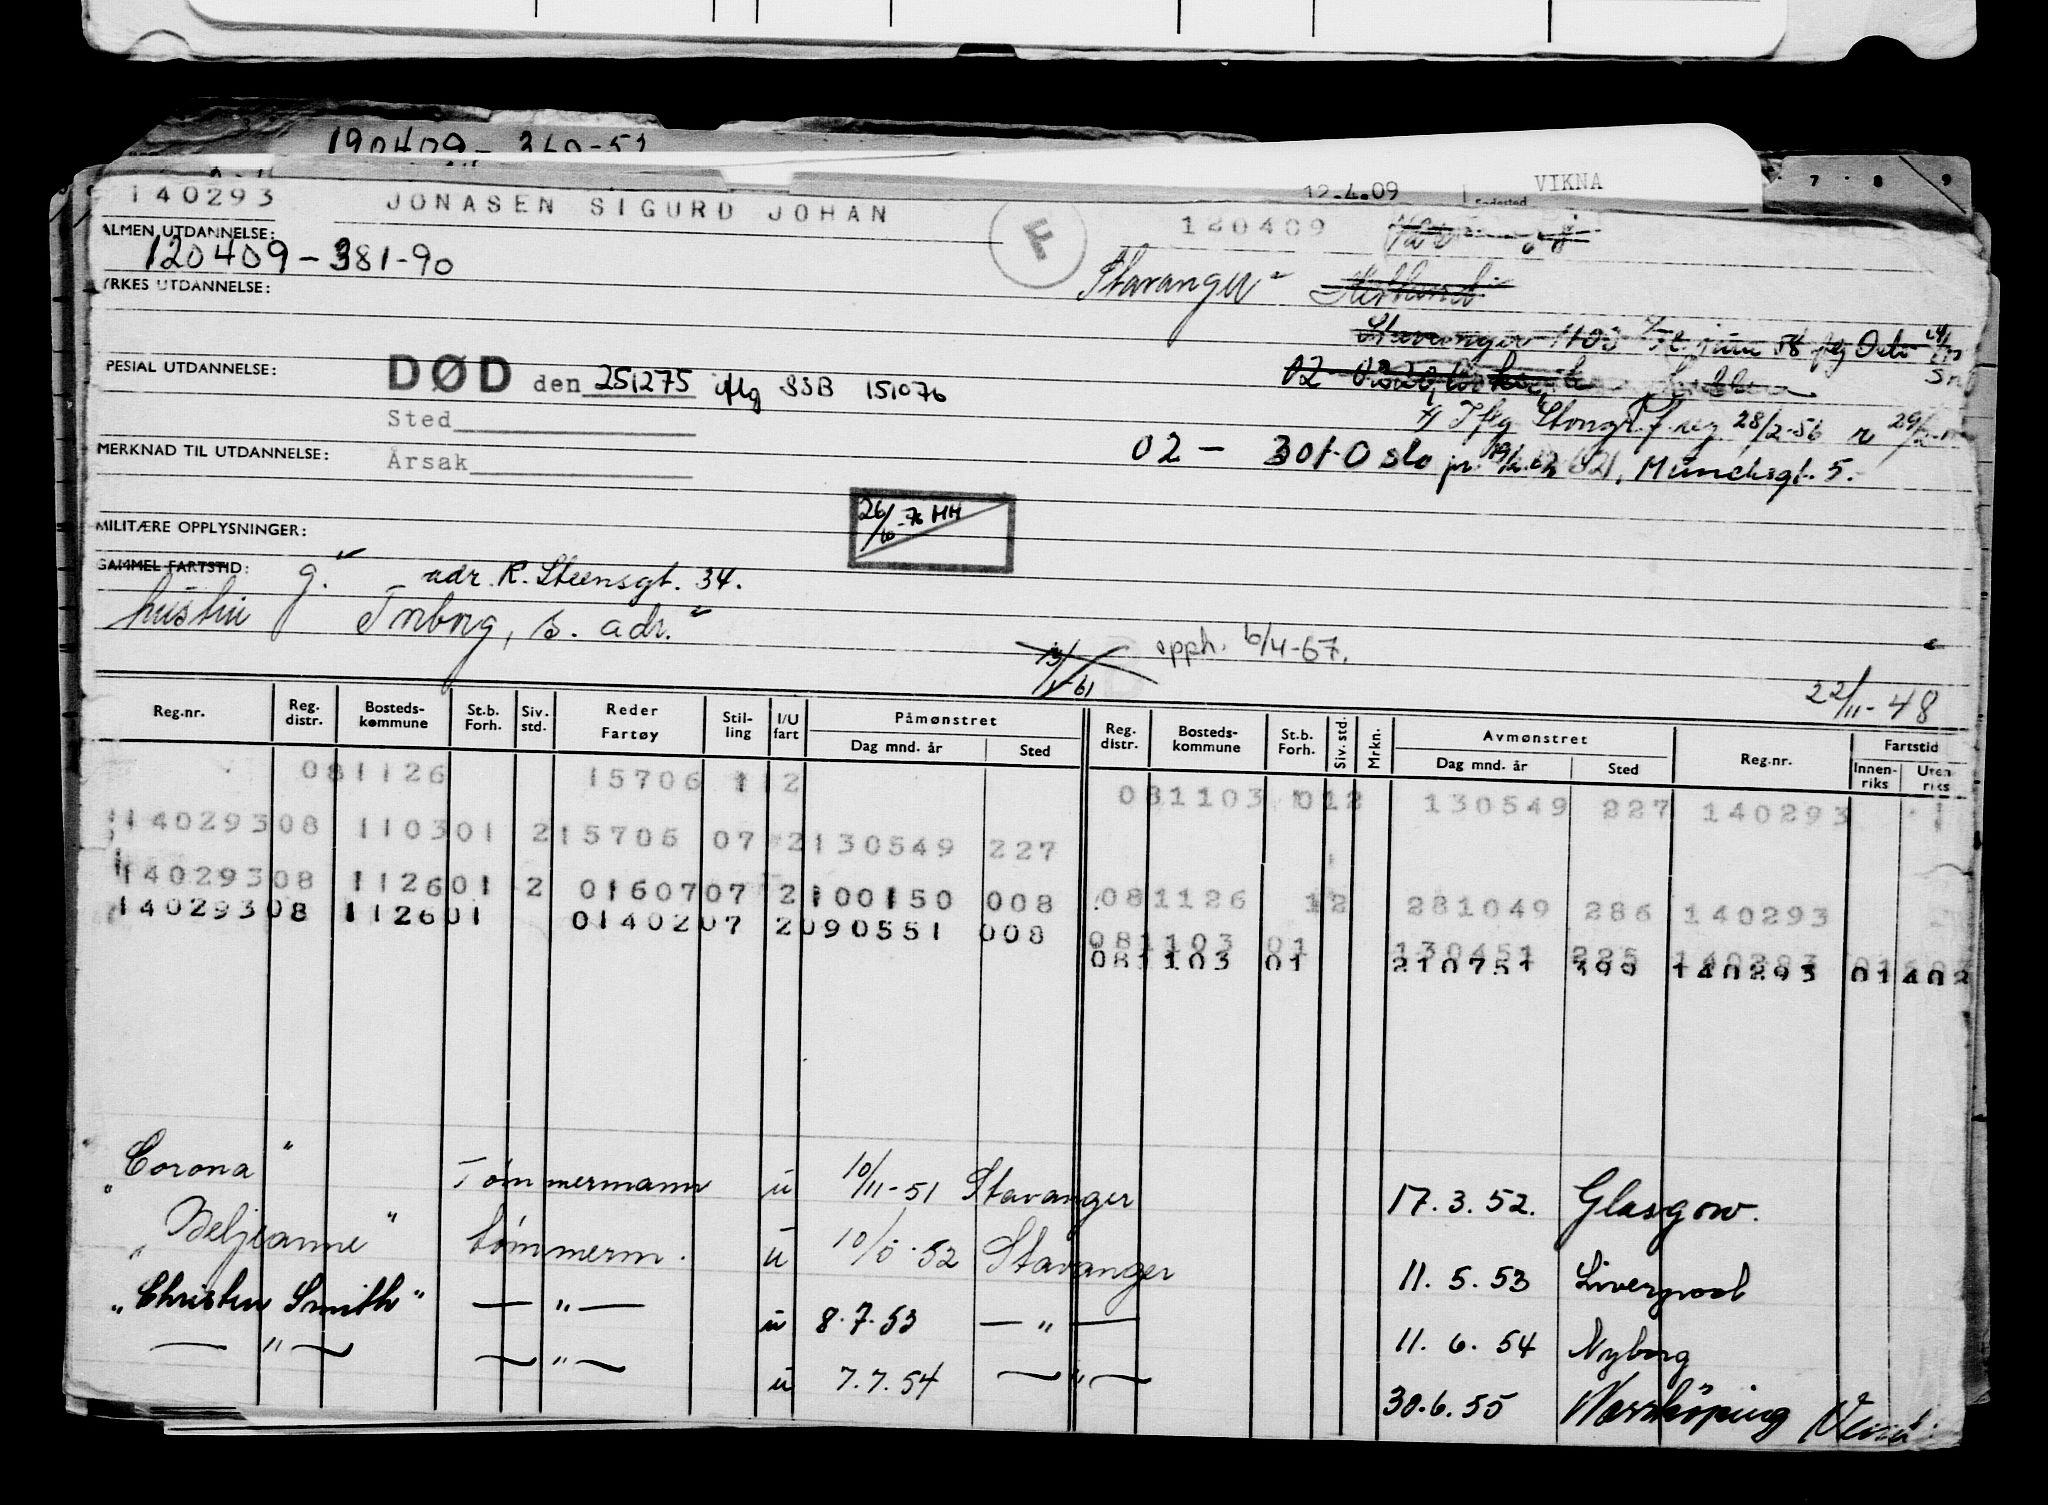 190409-
VIKNA
12.4.09
140293
JONASEN SIGURD JOHAN
F
120409
ALMEN UTDANNELSE:
120409-381-90
Stavanger
YRKES UTDANNELSE:
PESIAL UTDANNELSE:
DØD den 251275 iflg SSB 151076
Sted
28/2-56
MERKNAD TIL UTDANNELSE:
Årsak
02 - 301-Oslo Munchsgt. 5.
26/10-76 HH
MILITÆRE OPPLYSNINGER:
GAMMEL FARTSTID: g." adr. K. Steensgt. 34.
hustru s. adr."
opph. 6/4-67.
13/1-61
22/11-48
Reg.nr. Reg. distr. Bosteds-kommune St.b. Forh. Siv. std. Reder Fartøy Stil-ling I/U fart Påmønstret Dag mnd. år Sted Reg. distr. Bosteds-kommune St.b. Forh. Siv. std. Mrkn. Avmønstret Dag mnd. år Sted Reg.nr. Fartstid Innen-riks Uten-riks
081126 15706 112 081103 012 130549 227 140293
14029308 110301 215706 07 2130549 227
14029308 112601 2 0160707 2100150 008 081126 12 281049 286 140293
14029308 112601 0140207 2090551 008 081103 01 130451 225 140293
081103 01 210751 390 140293 01402
"Corona" Tømmermann u 10/11-51 Stavanger 17.3.52. Glasgow.
"Beljeanne" tømmerm. u Stavanger 11.5.53 Liverpool
"Christen Smith" — " — u 8.7.53 — " — 11.6.54 Nyborg
— " — — " — u 7.7.54 — " — 30.6.55 Norrköping